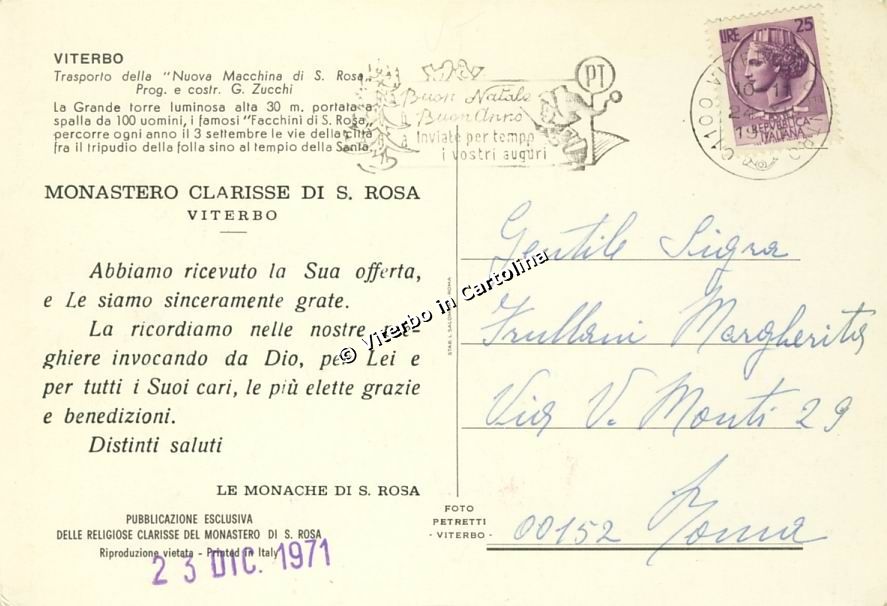 VITERBO
Trasporto della "Nuova Macchina di S. Rosa„
Prog. e costr. G. Zucchi
La Grande torre luminosa alta 30 m. portata a
spalla da 100 uomini, i famosi "Facchini di S. Rosa„
percorre ogni anno il 3 settembre le vie della città
fra il tripudio della folla sino al tempio della Santa.
MONASTERO CLARISSE DI S. ROSA
VITERBO
Abbiamo ricevuto la Sua offerta,
e Le siamo sinceramente grate.
La ricordiamo nelle nostre pre-
ghiere invocando da Dio, per Lei e
per tutti i Suoi cari, le più elette grazie
e benedizioni.
Distinti saluti
LE MONACHE DI S. ROSA
PUBBLICAZIONE ESCLUSIVA
DELLE RELIGIOSE CLARISSE DEL MONASTERO DI S. ROSA
Riproduzione vietata - Printed in Italy
23 DIC. 1971
© Viterbo in Cartolina
FOTO
PETRETTI
- VITERBO -
PT
Buon Natale
Buon Anno
Inviate per tempo
i vostri auguri
LIRE 25
REPVBBLICA
ITALIANA
Gentile Sigra
Frullani Margherita
Via V. Monti 29
00152 Roma